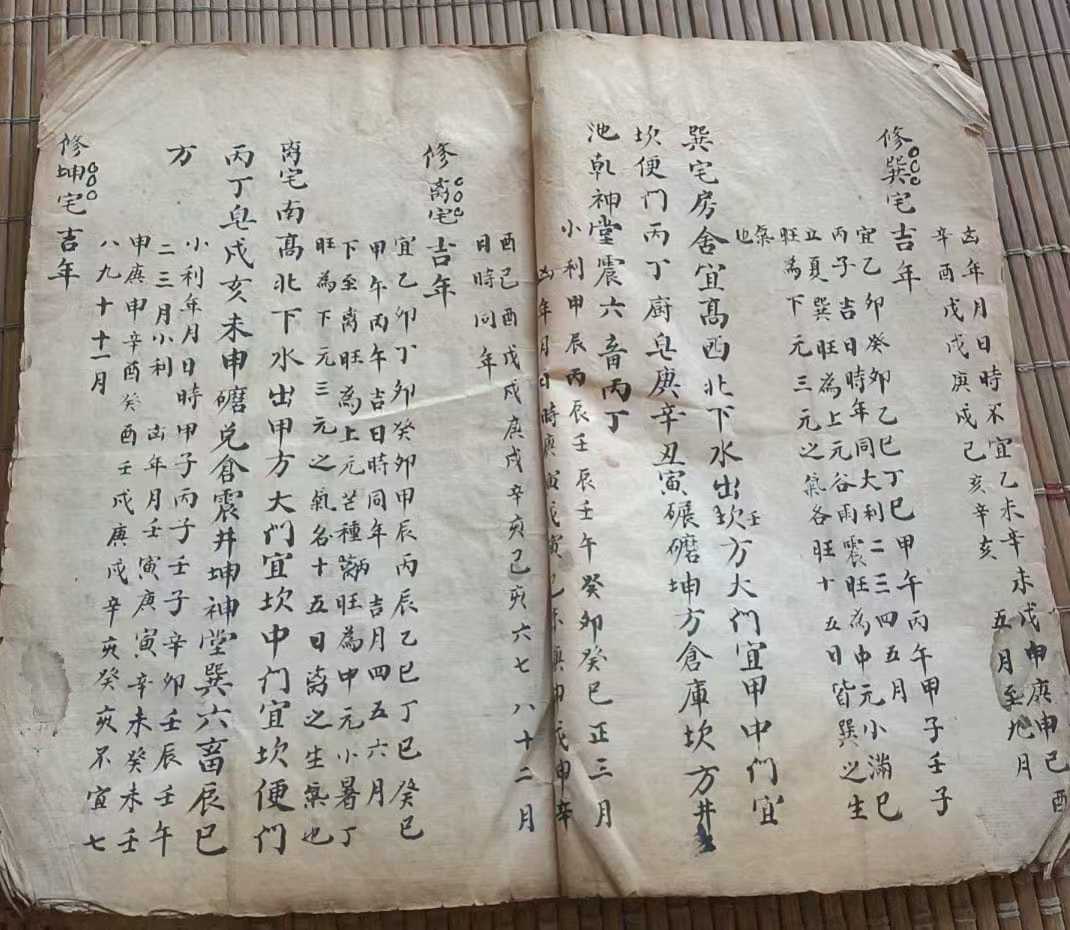 凶年月日時不宜乙未辛未戊申庚申己酉
辛酉戊戌庚戌己亥辛亥 五月至九月
修巽宅吉年
宜乙卯癸卯乙巳丁巳甲午丙午甲子壬子
丙子吉日時年同大利二三四五月
立夏巽旺為上元谷雨震旺為中元小滿巳
旺為下元三元之氣各旺十五日皆巽之生
氣也
巽宅房舍宜高西北下水出坎壬方大门宜甲中门宜
坎便门丙丁厨皂庚辛丑寅碾磨坤方倉庫坎方井
池乾神堂震六畜丙丁
小利甲辰丙辰壬辰壬午癸卯癸巳正三月
凶年月日時庚寅戊寅己未庚申戊申辛
酉己酉戊戌庚戌辛亥己亥六七八十二月
日時同年
修离宅吉年
宜乙卯丁卯癸卯甲辰丙辰乙巳丁巳癸巳
甲午丙午吉日時同年吉月四五六月
下至离旺為上元芒種丙旺為中元小暑丁
旺為下元三元之氣名十五日离之生氣也
离宅南高北下水出甲方大门宜坎中门宜坎便门
丙丁皂戌亥未申磨兑倉震井坤神堂巽六畜辰巳
方
小利年月日時甲子丙子壬子辛卯壬辰壬午
二三月小利 凶年月壬寅庚寅辛未癸未壬
申庚申辛酉癸酉壬戌庚戌辛亥癸亥不宜七
八九十十一月
修坤宅吉年